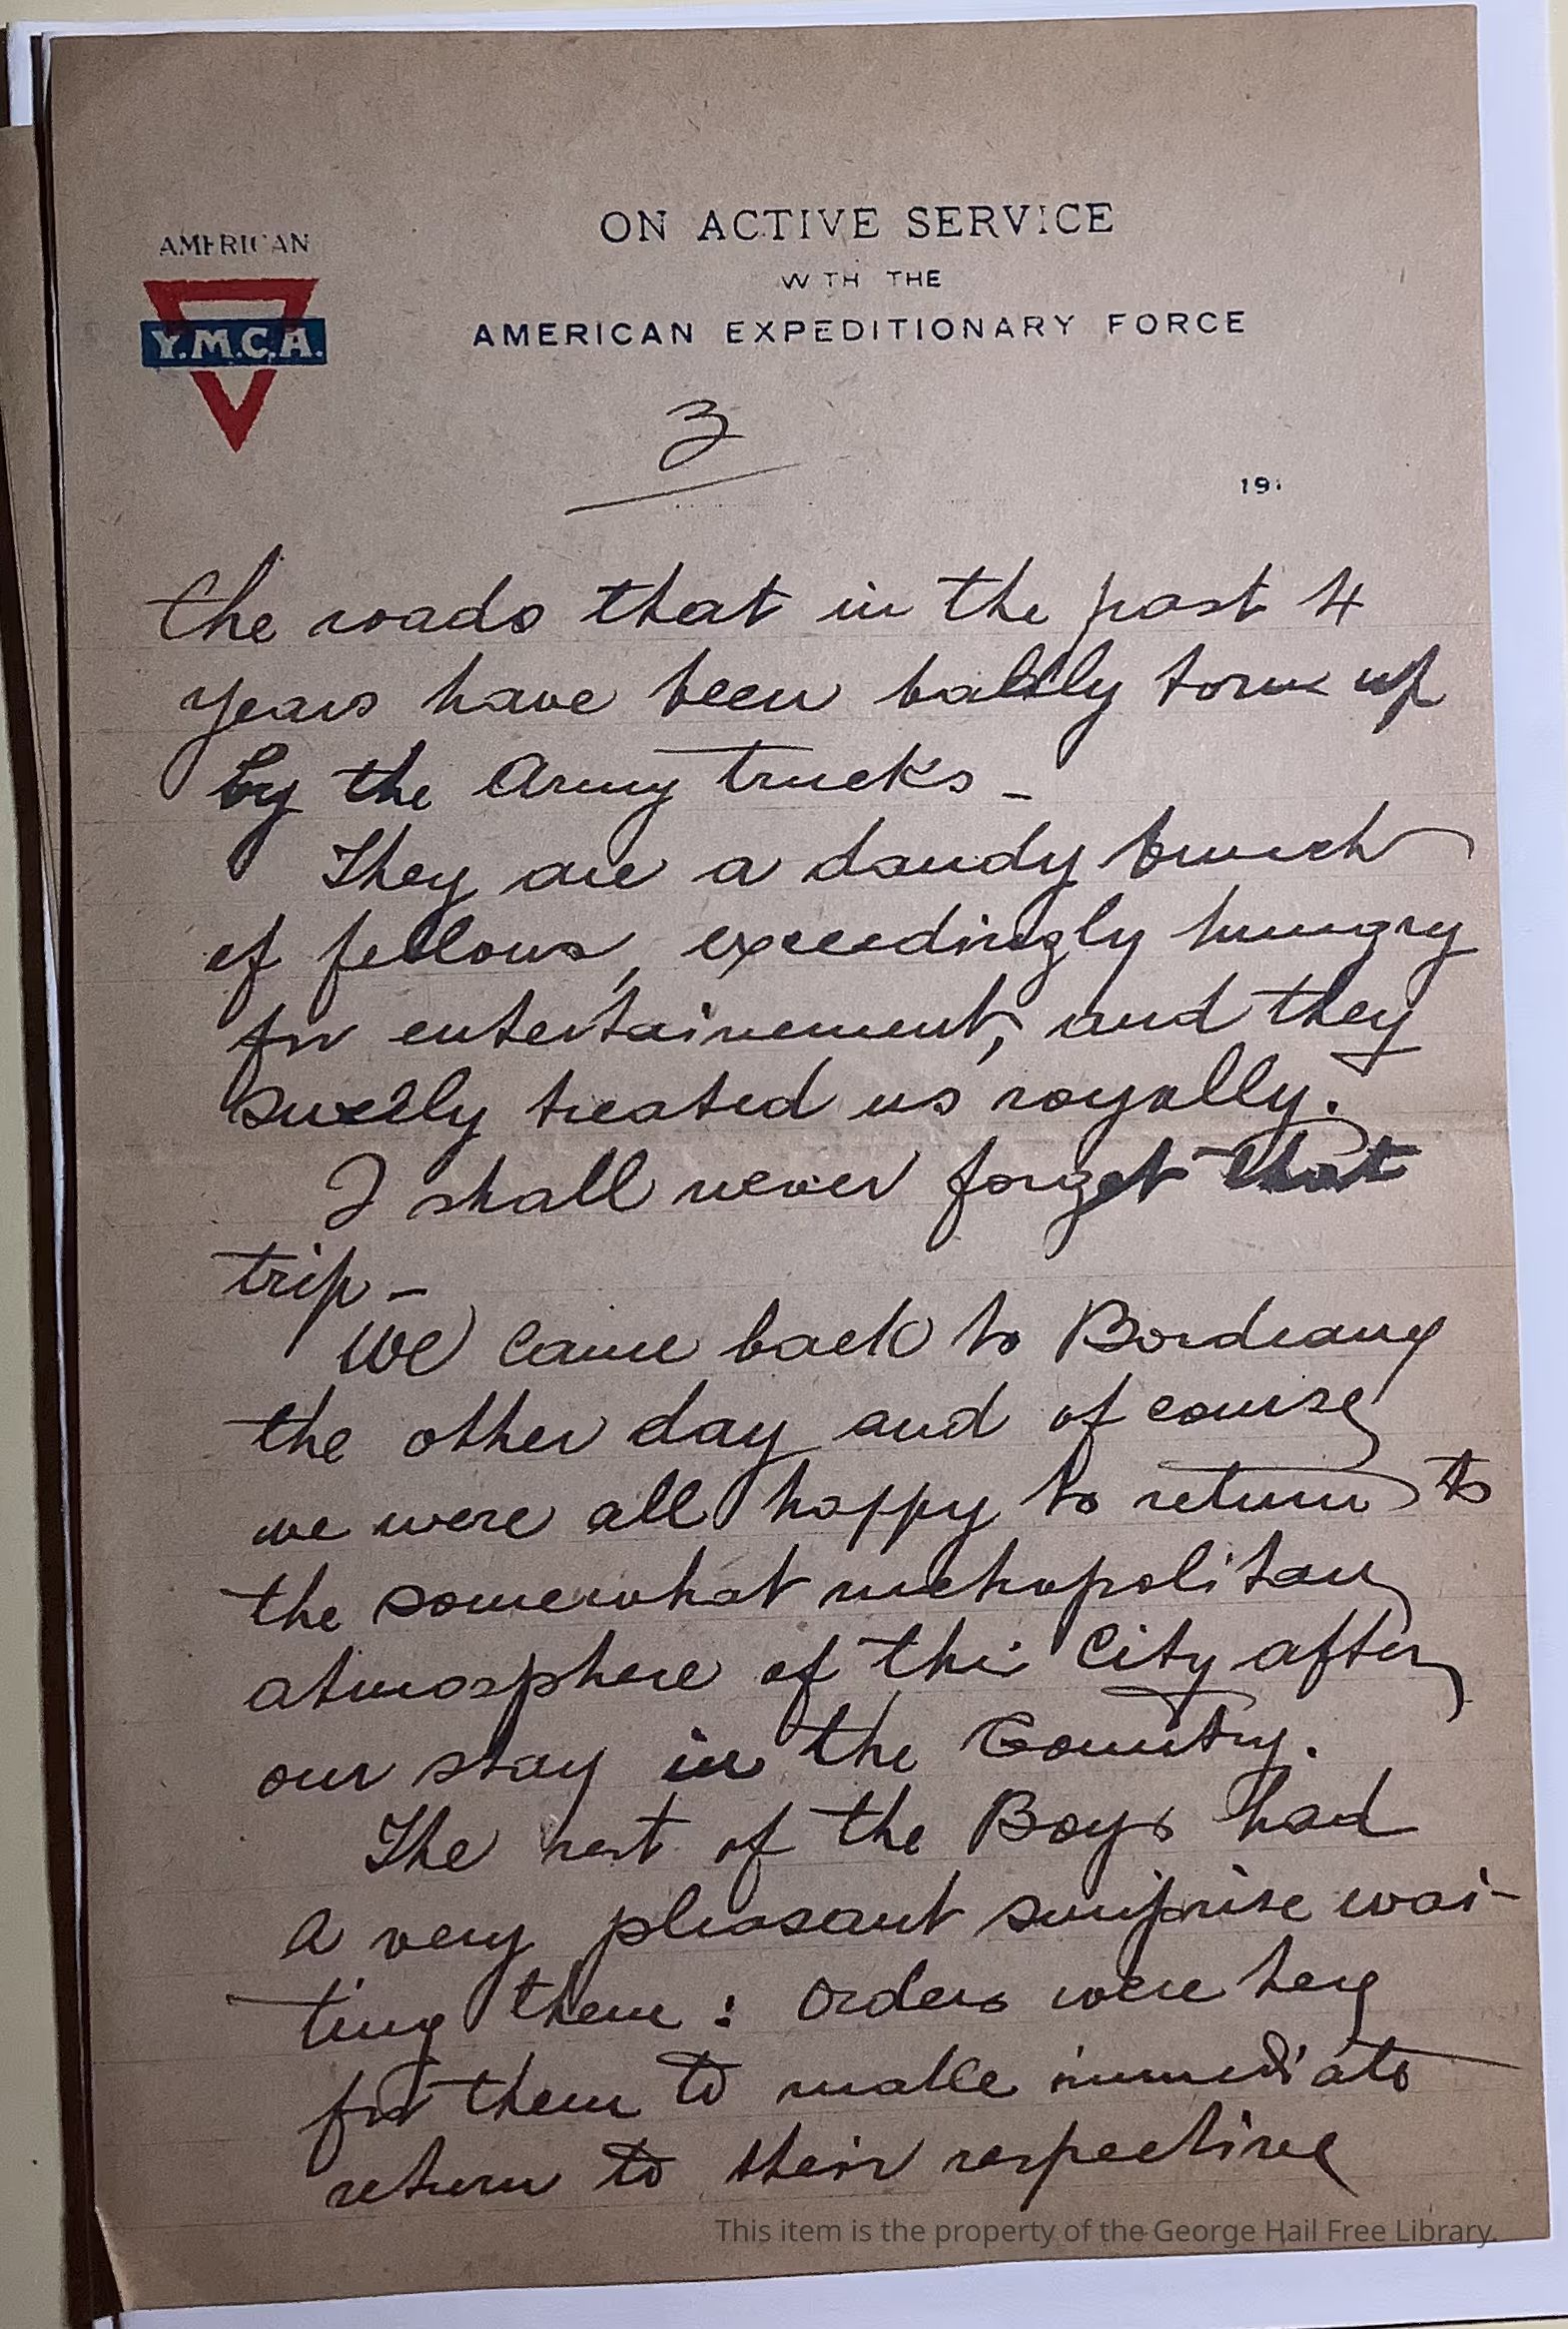 ON ACTIVE SERVICE
WITH THE
AMERICAN EXPEDITIONARY FORCE
AMERICAN
Y.M.C.A.
3
191
the roads that in the past 4
years have been badly torn up
by the Army trucks _
They are a dandy bunch
of fellows, exceedingly hungry
for entertainement, and they
surely treated us royally.
I shall never forget that
trip –
We came back to Bordeaux
the other day and of course
we were all happy to return to
the somewhat metropolitan
atmosphere of this City after
our stay in the Country.
The rest of the Boys had
a very pleasant surprise wai-
ting them : Orders were here
for them to make immediate
return to their respective
This item is the property of the George Hail Free Library.